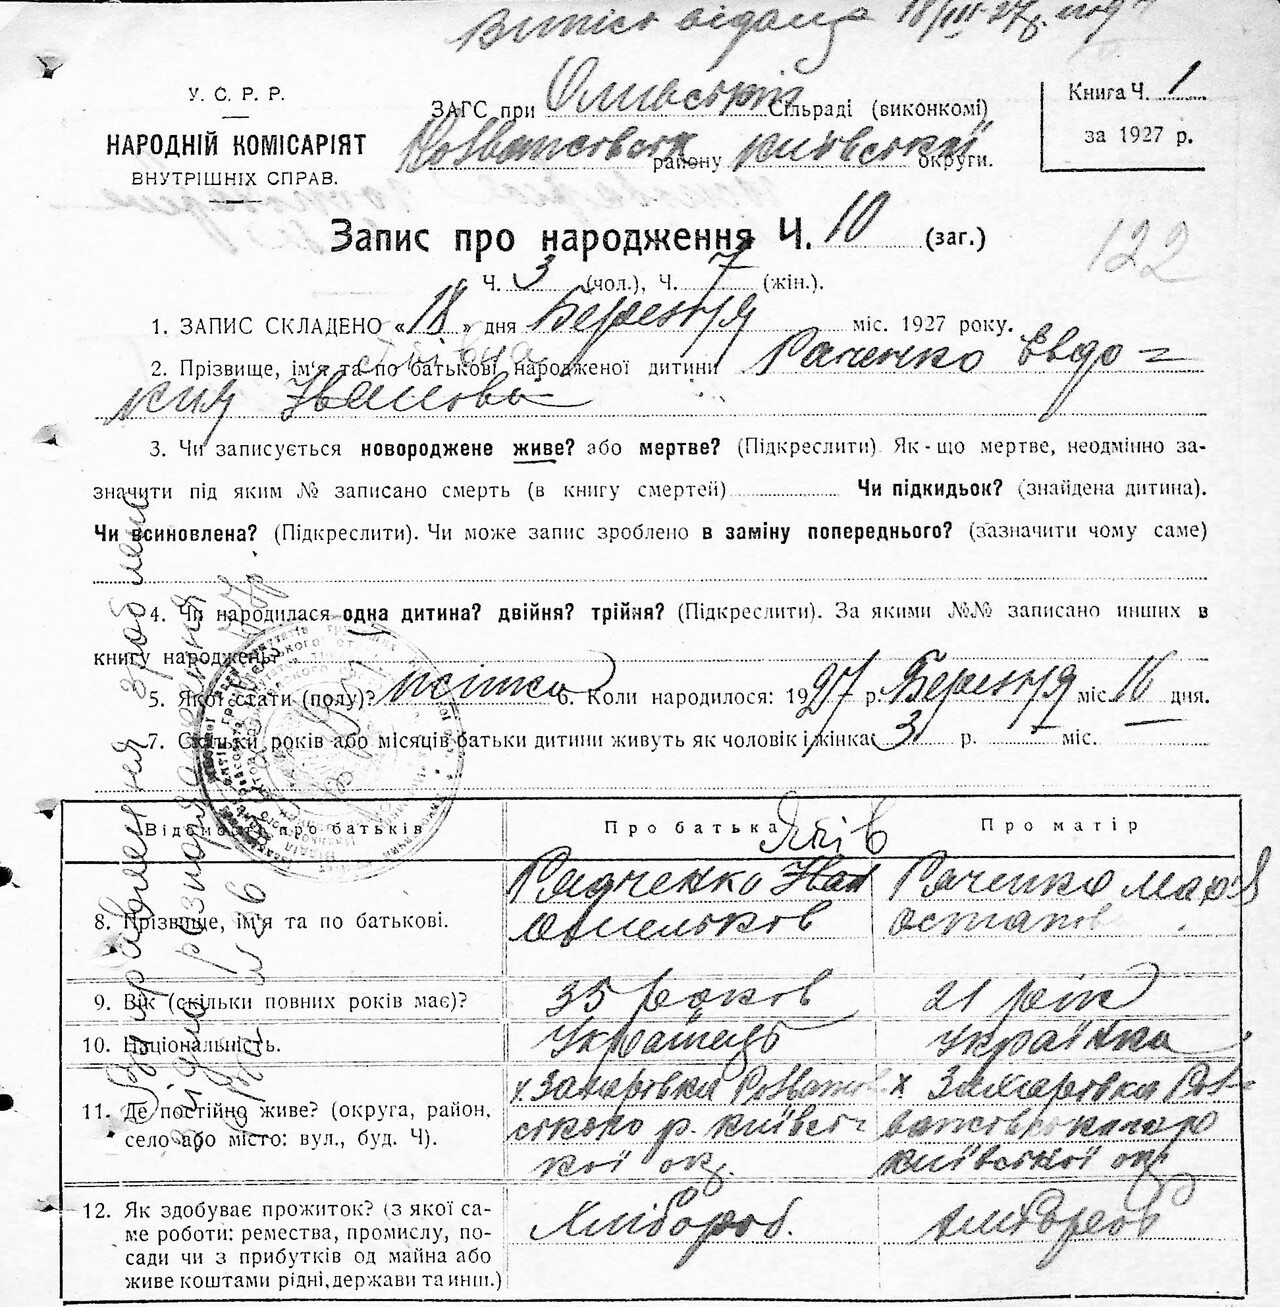 Випись видана 18/III-27р.
У. С. Р. Р.
НАРОДНІЙ КОМІСАРІЯТ
ВНУТРІШНІХ СПРАВ.
ЗАГС при Сільраді (виконкомі)
району Київської округи.
Книга Ч. 1
за 1927 р.
122
Запис про народження Ч. 10 (заг.)
Ч. 3 (чол.), Ч. 7 (жін.).
1. ЗАПИС СКЛАДЕНО « 18 » дня Березня міс. 1927 року.
2. Прізвище, ім'я та по батькові народженої дитини Раченко Евдо-
кия Іванова
3. Чи записується новороджене живе? або мертве? (Підкреслити) Як-що мертве, неодмінно за-
значити під яким № записано смерть (в книгу смертей) Чи підкидьок? (знайдена дитина).
Чи всиновлена? (Підкреслити). Чи може запис зроблено в заміну попереднього? (зазначити чому саме)
4. Чи народилася одна дитина? двійня? трійня? (Підкреслити). За якими №№ записано инших в
книгу народжень?
5. Якої стати (полу)? жіноча 6. Коли народилося: 1927 р. Березня міс. 16 дня.
7. Скільки років або місяців батьки дитини живуть як чоловік і жінка 3 р. міс.
Відомості про батьків
Про батька
Про матір
Яків
8. Прізвище, ім'я та по батькові.
Радченко Іван
Омельков
Раченко Мария
Остапов
9. Вік (скільки повних років має)?
35 років
21 рік
10. Національність.
Українець
Українка
11. Де постійно живе? (округа, район,
село або місто: вул., буд. Ч).
х. Захаровка Розважів
ського р. Київсь-
кої окр.
х Захаровка Роз-
Київської окр
12. Як здобуває прожиток? (з якої са-
ме роботи: ремества, промислу, по-
сади чи з прибутків од майна або
живе коштами рідні, держави та инш.)
Хлібороб.
Хлібороб
Виправлення зроблено